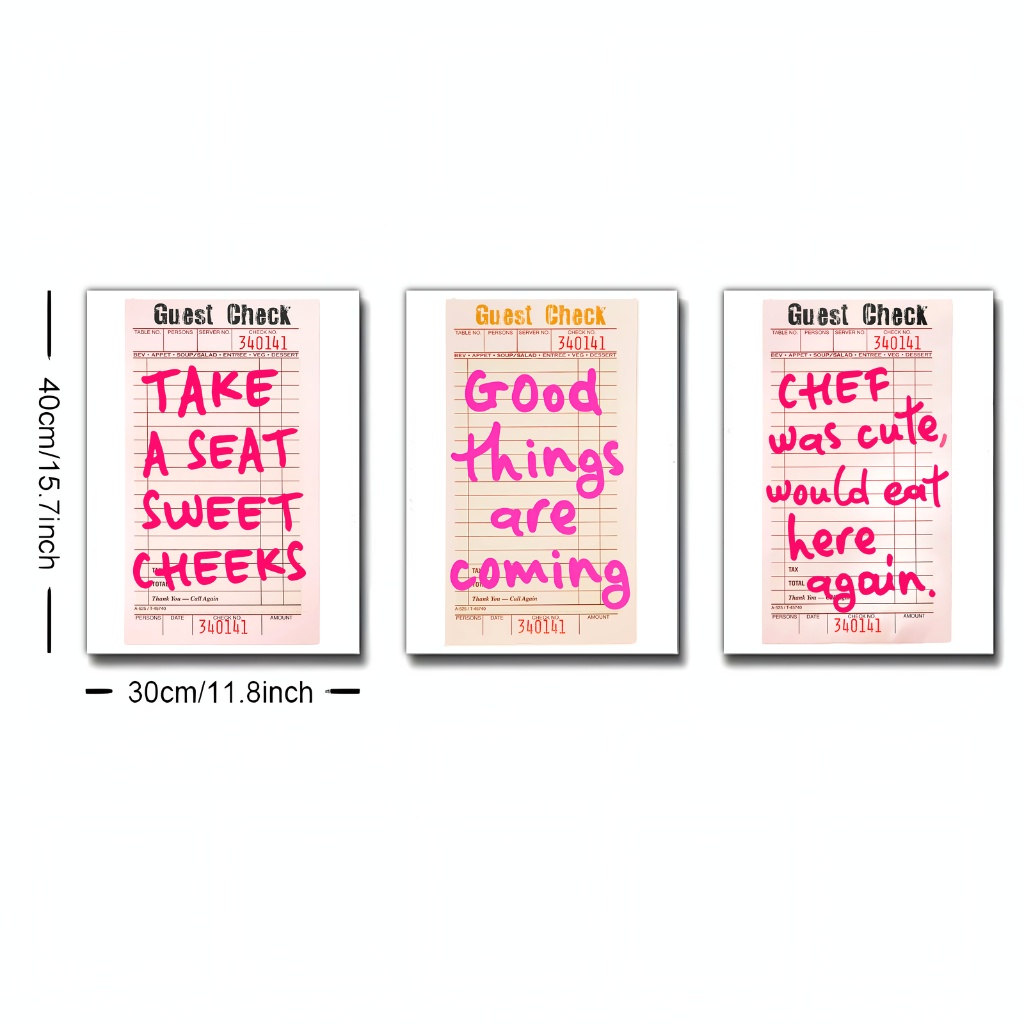 40cm/15.7inch
Guest Check
TABLE NO. PERSONS SERVER NO. CHECK NO.
340141
BEV • APPET • SOUP/SALAD • ENTREE • VEG • DESSERT
TAKE
A SEAT
SWEET
CHEEKS
TAX
TOTAL
Thank You — Call Again
A-525 / T-45740
PERSONS DATE CHECK NO. AMOUNT
340141
30cm/11.8inch
Guest Check
TABLE NO. PERSONS SERVER NO. CHECK NO.
340141
BEV • APPET • SOUP/SALAD • ENTREE • VEG • DESSERT
Good
things
are
coming
TAX
TOTAL
Thank You — Call Again
A-525 / T-45740
PERSONS DATE CHECK NO. AMOUNT
340141
Guest Check
TABLE NO. PERSONS SERVER NO. CHECK NO.
340141
BEV • APPET • SOUP/SALAD • ENTREE • VEG • DESSERT
CHEF
was cute,
would eat
here
again.
TAX
TOTAL
Thank You — Call Again
A-525 / T-45740
PERSONS DATE CHECK NO. AMOUNT
340141